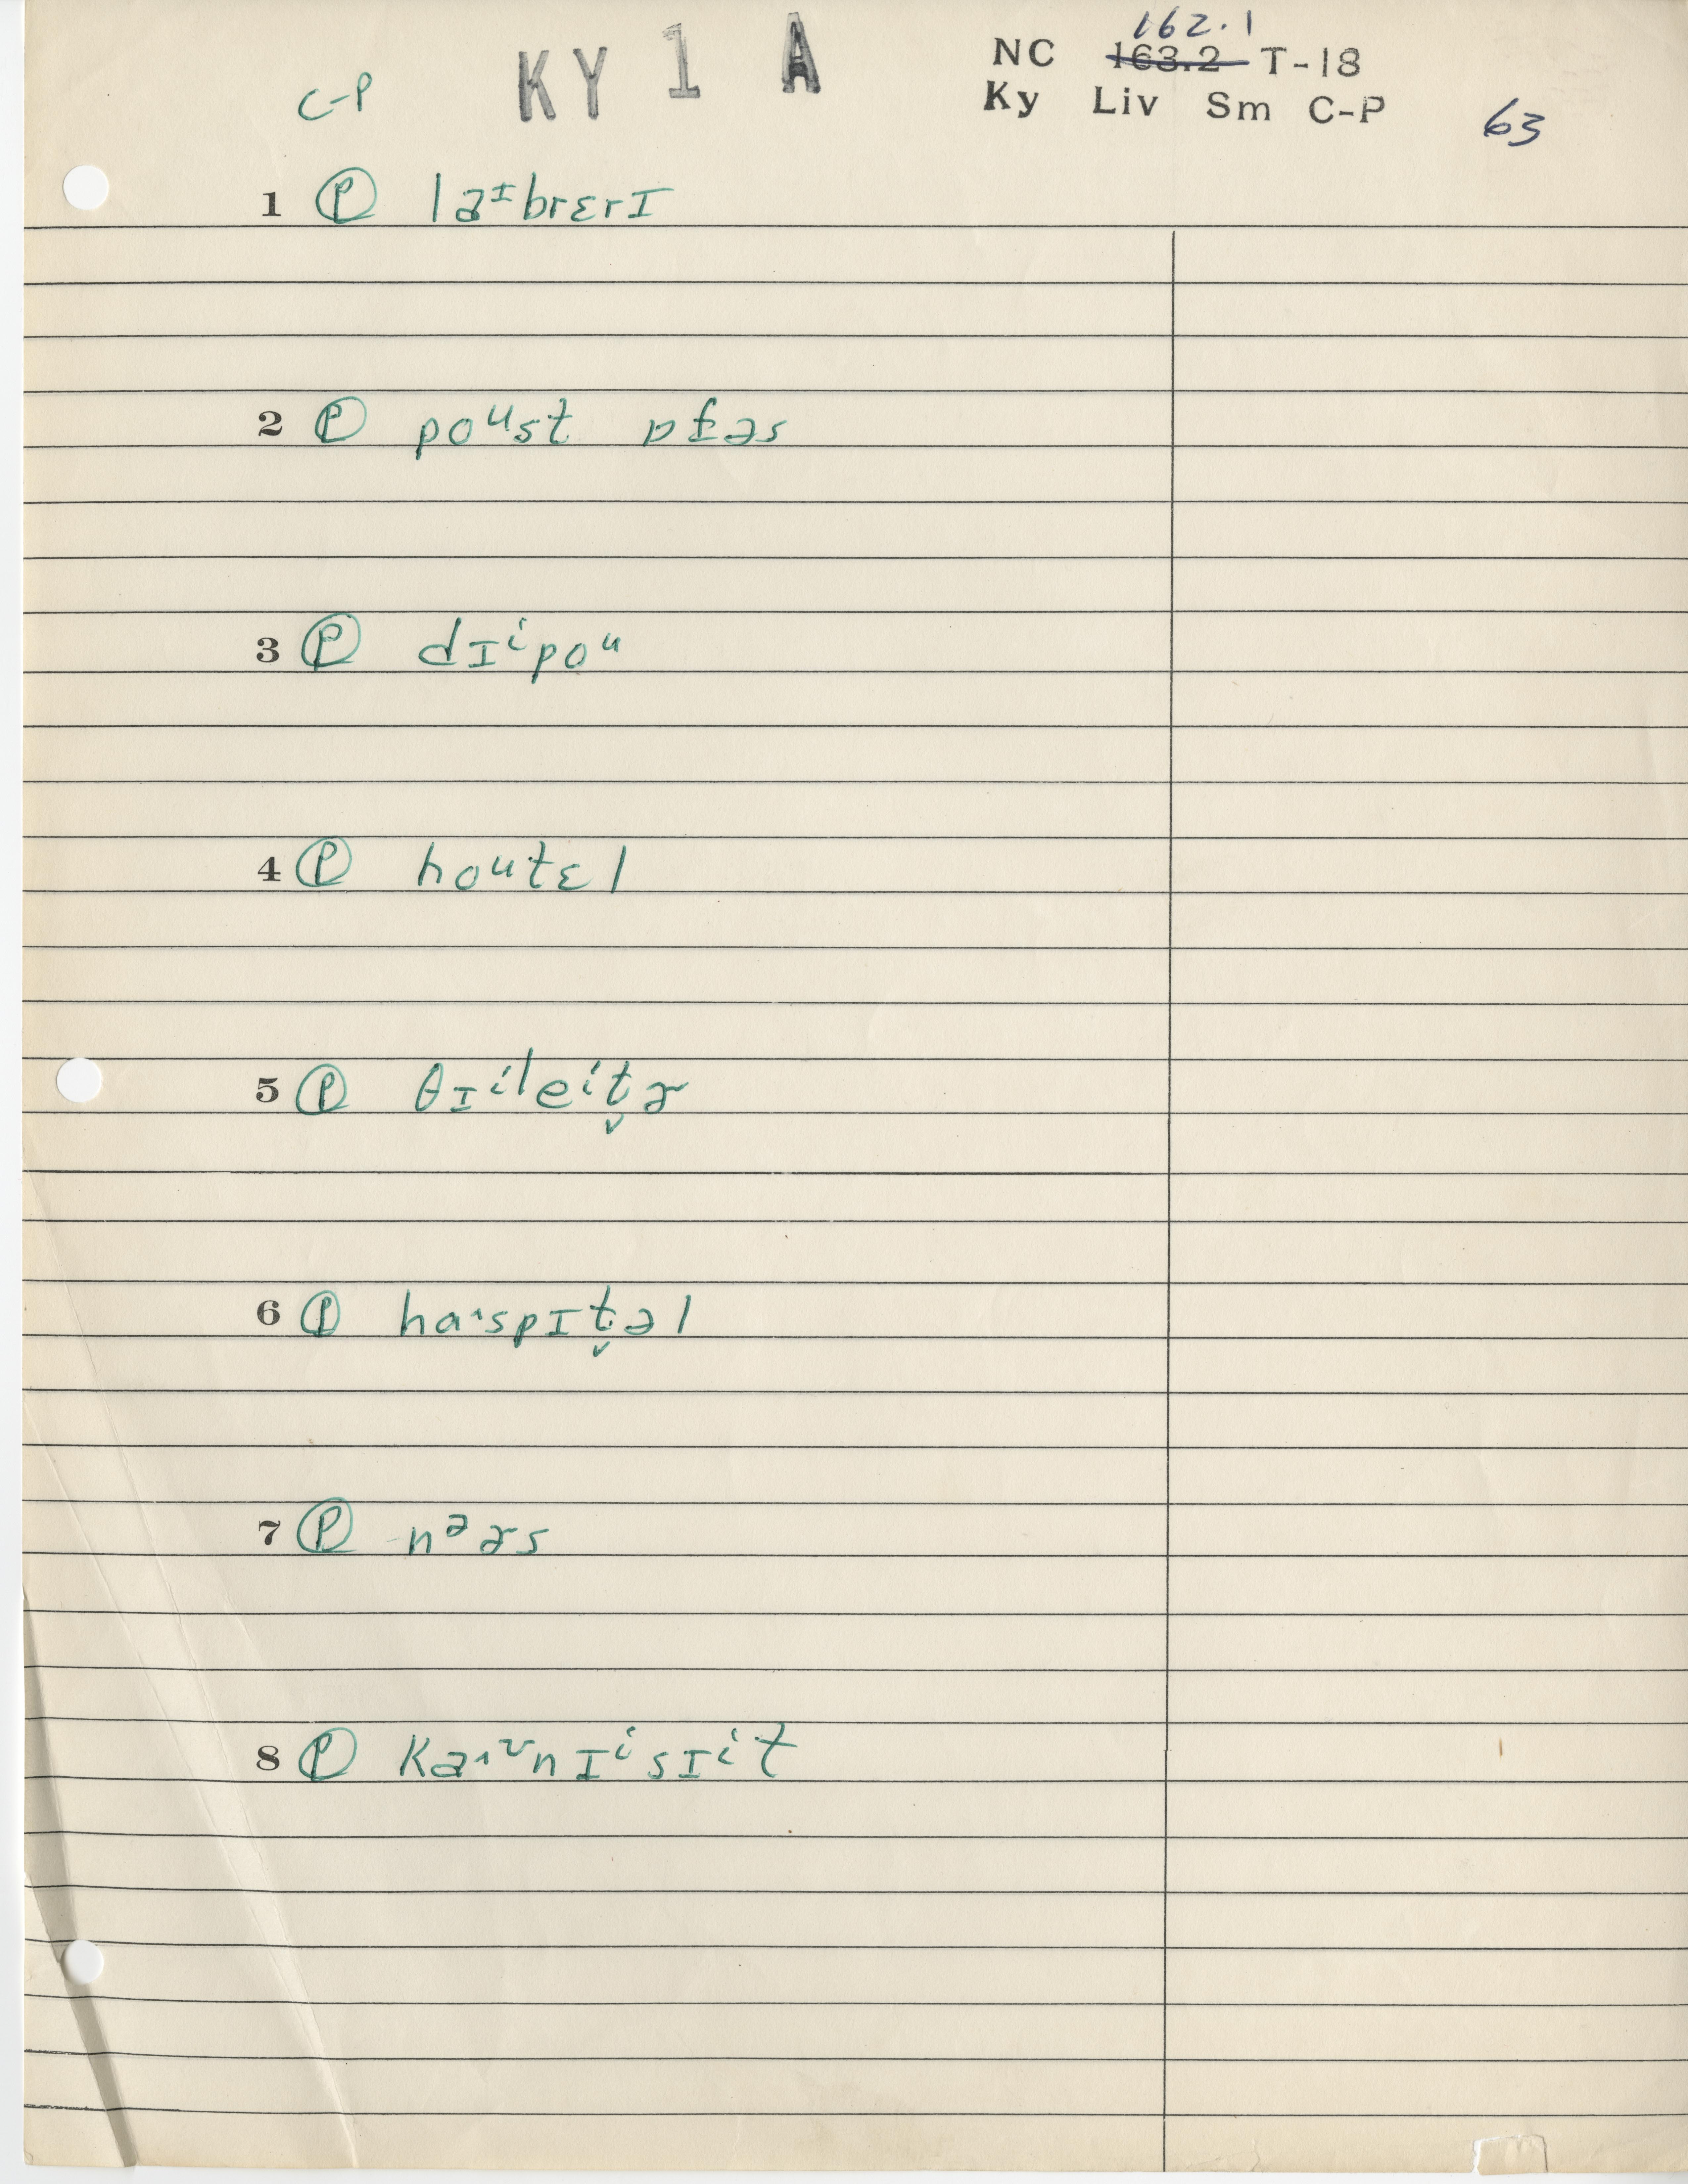 162.1
C-P KY 1 A NC 163.2 T-18
Ky Liv Sm C-P 63
1 Ⓟ laᶦbrɛrɪ
2 Ⓟ poᵘst ɒfəs
3 Ⓟ dɪⁱpoᵘ
4 Ⓟ hoᵘtɛl
5 Ⓟ θɪⁱleⁱt̬ɚ
6 Ⓟ hɑ˄spɪt̬əl
7 Ⓟ nᵊɚs
8 Ⓟ Ka˄ᶹnɪⁱsɪⁱt